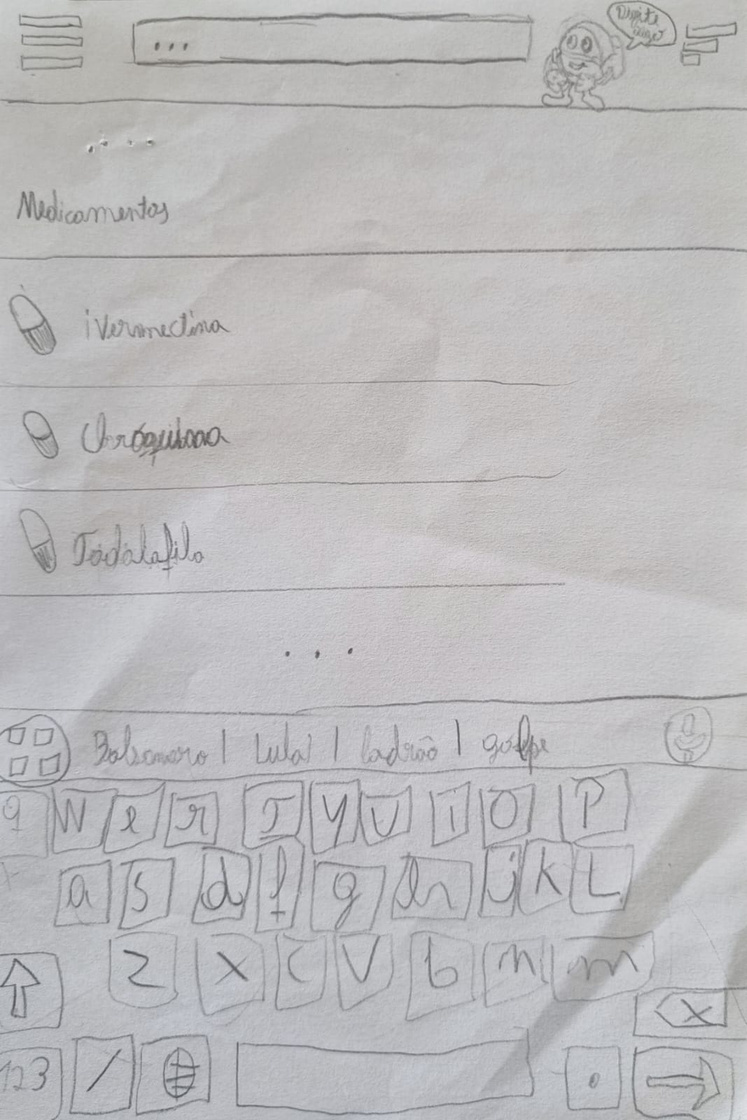 ...
Digite algo
....
Medicamentos
ivermectina
Cloroquina
Tadalafila
...
Bolsonaro | Lula | ladrão | golpe
q W e r T y U i O P
a s d f g h j k L
Z X C V b n m
X
123 / .